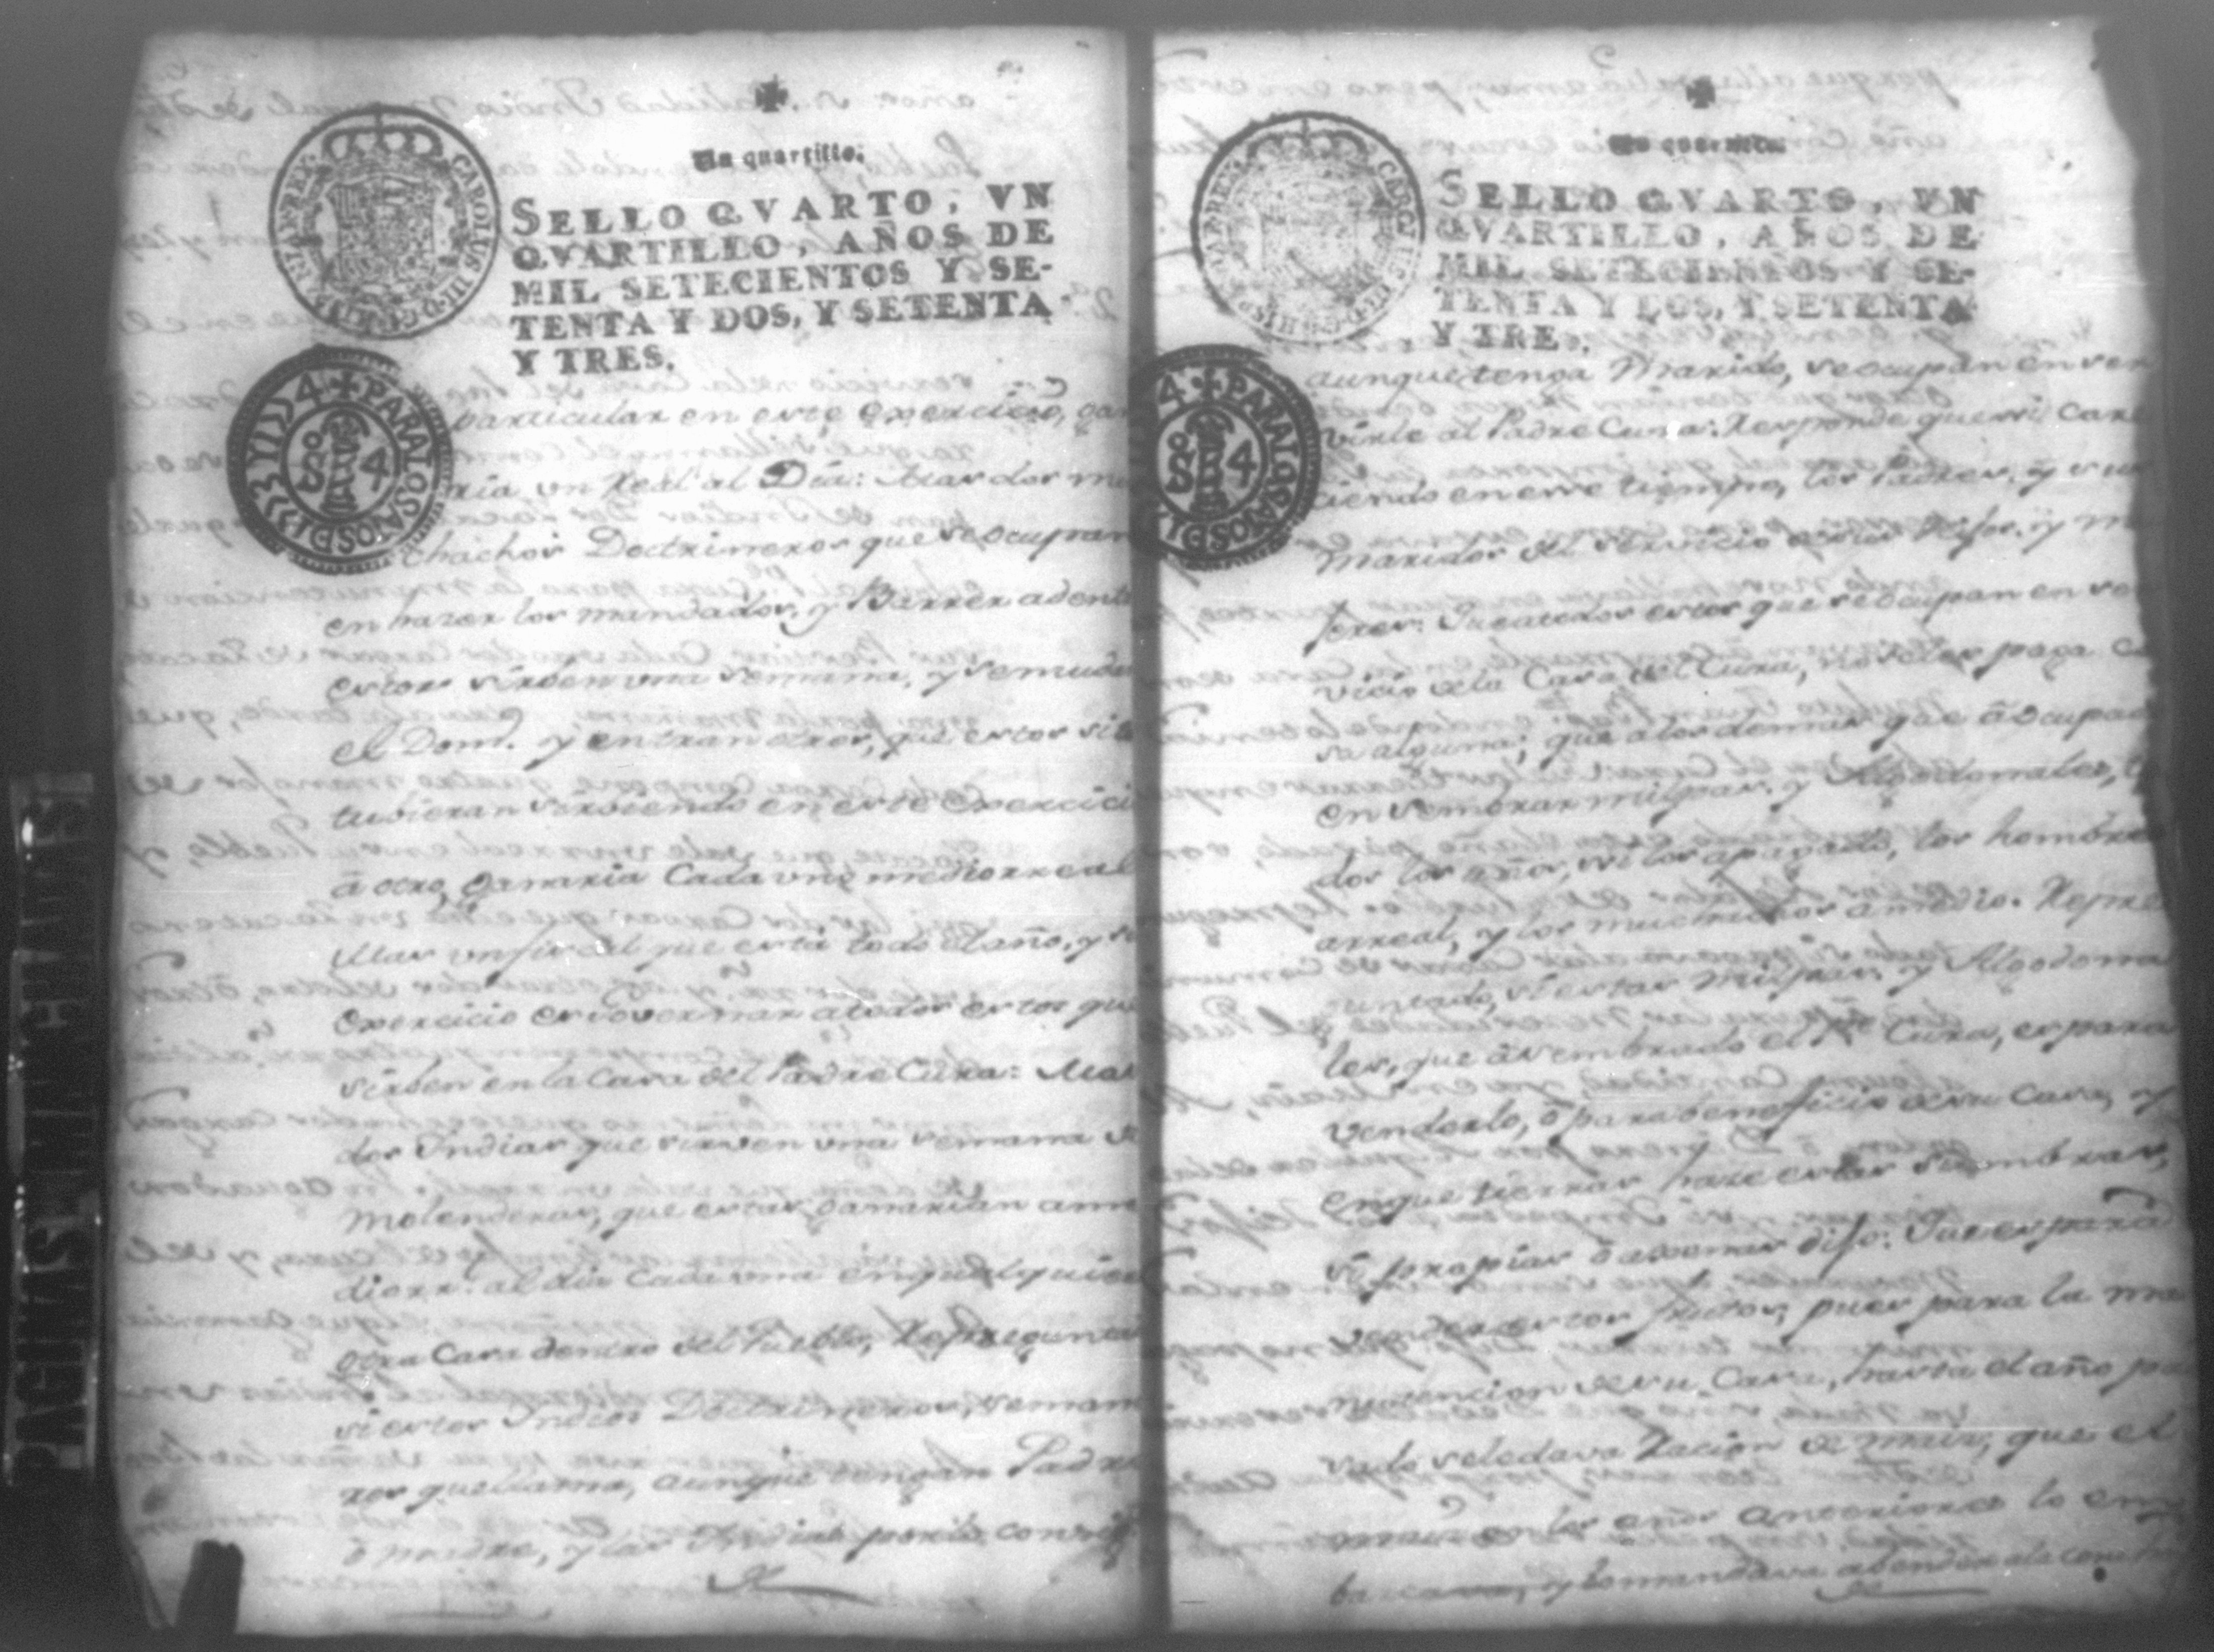 Un quartillo.
SELLO QVARTO, VN
QVARTILLO, AÑOS DE
MIL SETECIENTOS Y SE-
TENTA Y DOS, Y SETENTA
Y TRES.
CAROLUS III D. G. HISP. ET IND. REX
PARA LOS AÑOS D 1773 Y 1774
particular en este exercicio, gan
aria un Real al Dia: Mas dos mu
chachos Doctrineros que se ocupan
en hazer los mandados, y Barrer adent
estos sirben una semana, y se mudan
el Dom.º y entran otros, que estos si es
tubieran sirbiendo en este exercici
á otro, ganaria Cada uno mediorreal
Mas un fiscal que está todo el año, y su
exercicio es governar a todos estos que
sirben en la Casa del Padre Cura: Mas
dos Indias que sirven una semana de
Molenderas, que estas ganarian a me
dio rr.l al dia cada una en qualquier
otra Casa dentro del Pueblo, Repregunta
si estos Indios Doctrineros, seman
ros que llama, aunque tengan Padre
ó madre, y las Indias por lo consig.
Un quartillo.
SELLO QVARTO, VN
QVARTILLO, AÑOS DE
MIL SETECIENTOS Y SE-
TENTA Y DOS, Y SETENTA
Y TRES.
PARA LOS AÑOS D
aunque tenga Marido, se ocupan en ser
virle al Padre Cura: Responde que si Care
ciendo en ese tiempo, los Padres, y sus
Maridos del servicio de sus Hijos, y mu
jeres: Que a todos estos que se ocupan en ser
vicio de la Casa del Cura, no se les paga co
sa alguna; que a los demas que á ocupado
en sembrar milpas, y Algodonales, to
dos los años, se les á pagado, los hombres
a rreal, y los muchachos a medio. Repre
guntado, si estas milpas, y Algodona
les, que á sembrado el P.e Cura, es para
venderlo, ó para beneficio de su Casa, y
en que tierras haze estas siembras,
si propias ó agenas dijo: Que es para
vender estos frutos, pues para la ma
nutencion de su Casa, hasta el año pa
sado se le dava Racion de maiz, que el
maiz en los años anteriores lo em
barcava, y lo mandava a bender a la costa